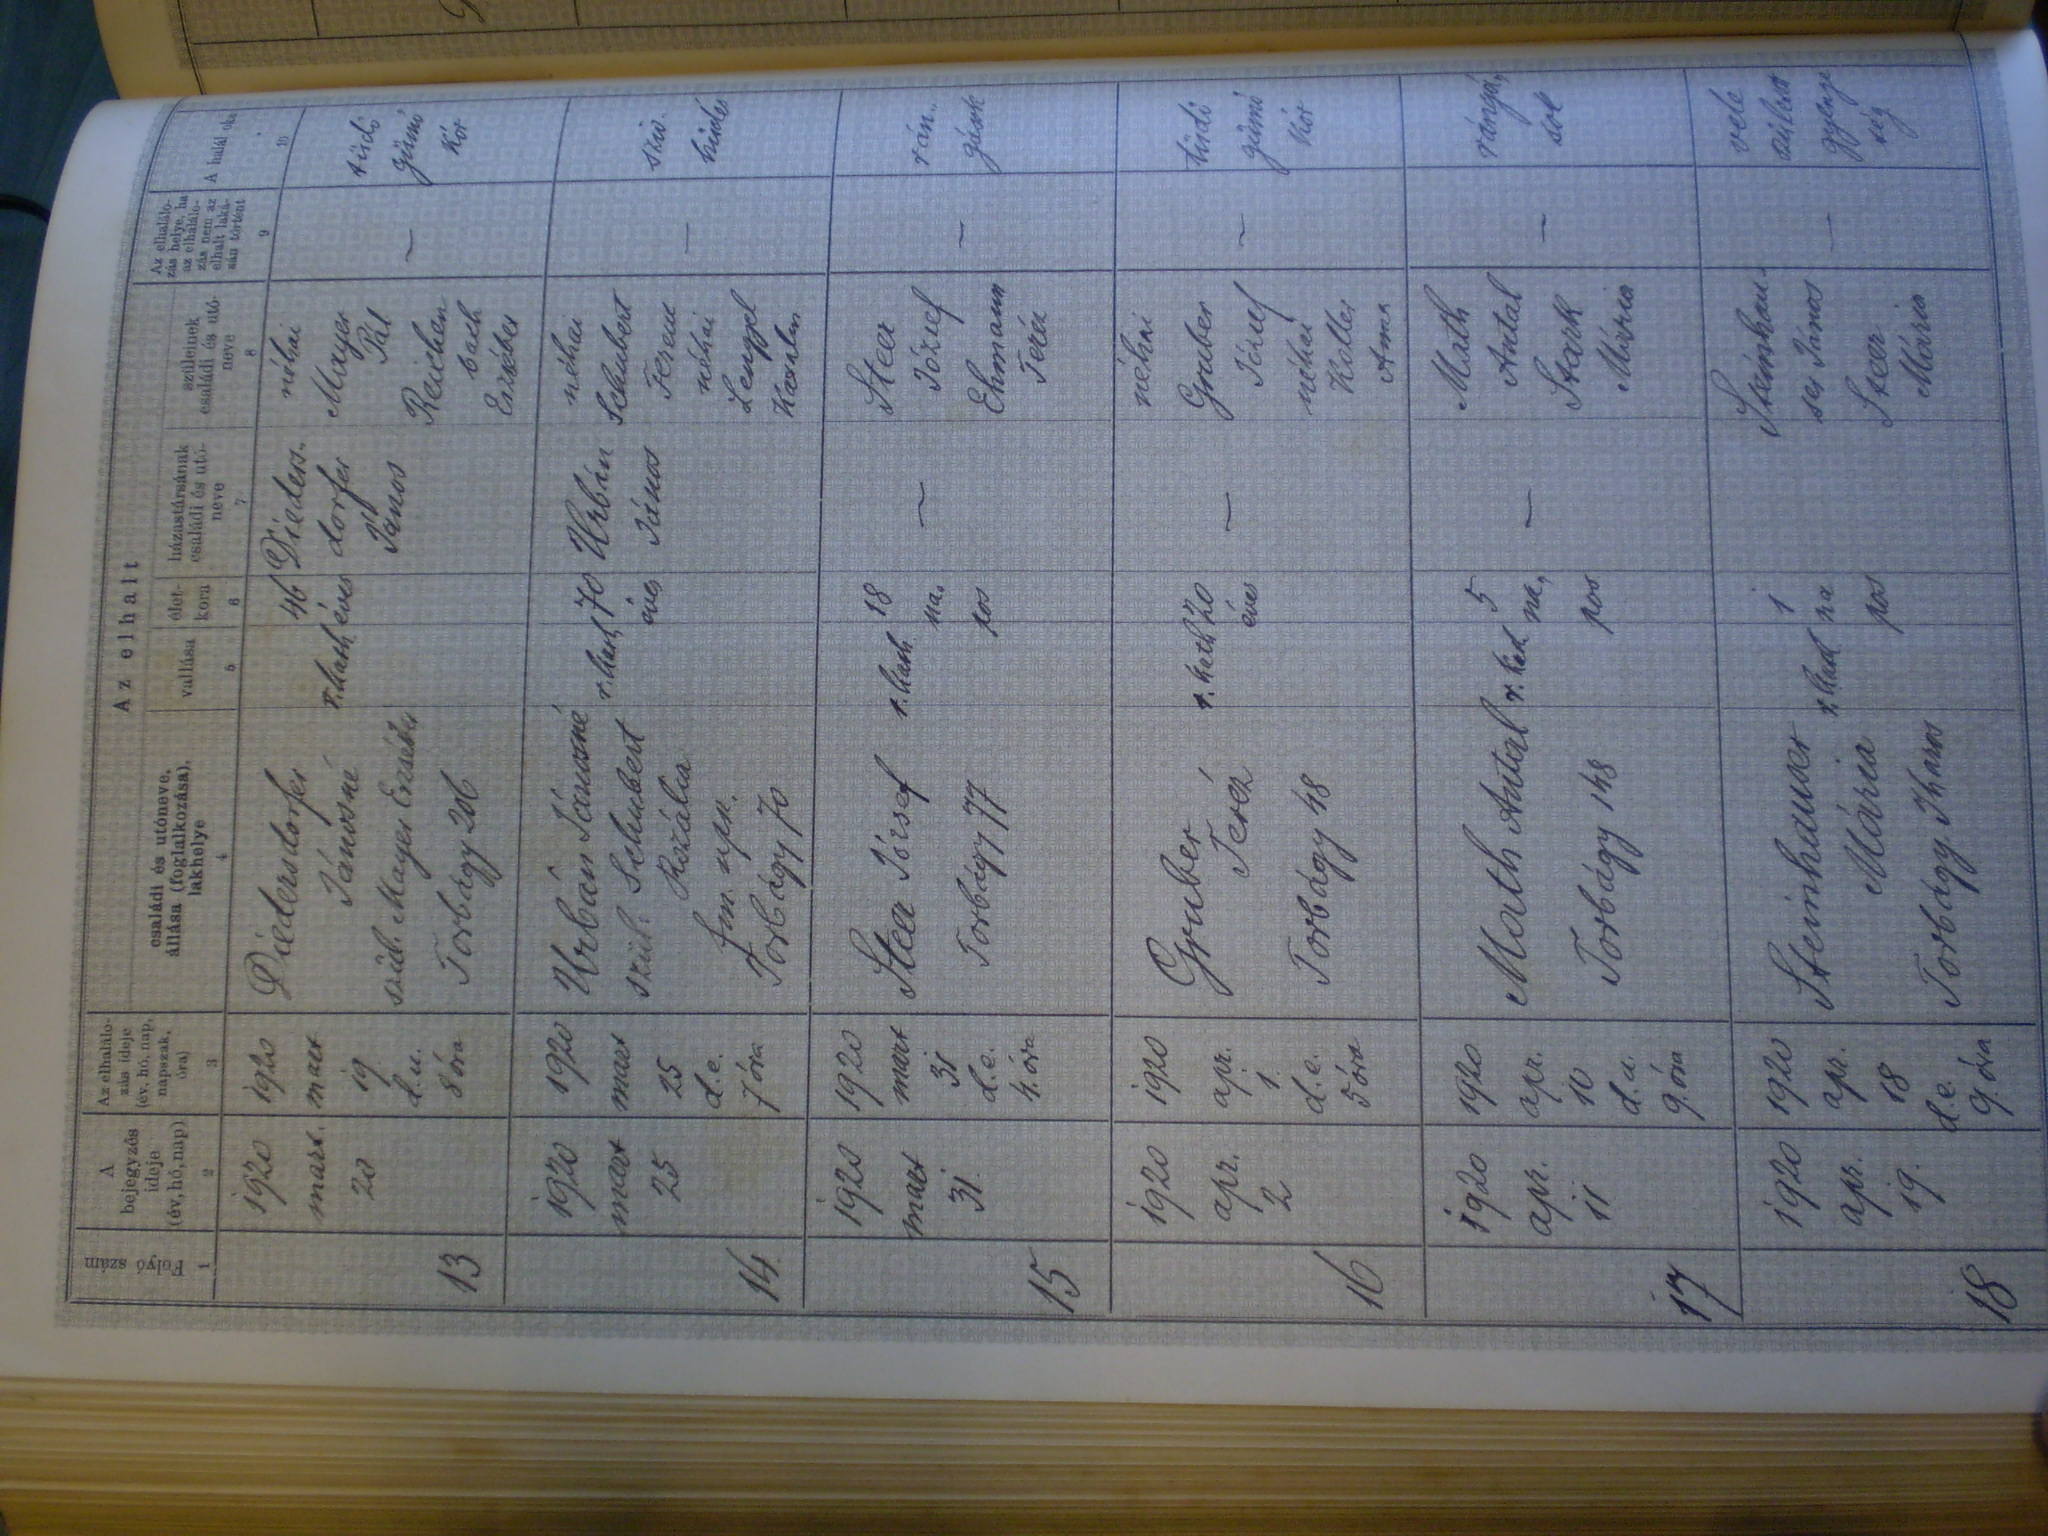 Az elhalt
Folyó szám
A bejegyzés ideje (év, hó, nap)
Az elhalálo-
zás ideje
(év, hó, nap,
napszak,
óra)
családi és utóneve,
állása (foglalkozása),
lakhelye
vallása
élet-
kora
házastársának
családi és utó-
neve
szüleinek
családi és utó-
neve
Az elhaláló-
zás helye, ha
az elhaláló-
zás nem az
elhalt laká-
sán történt
A halál oka
1
2
3
4
5
6
7
8
9
10
13
1920
mart.
20
1920
mart
19
d.u.
8 óra
Diedersdorfer
Jánosné
szül. Mayer Erzsébet
Torbágy 206
r. kath
46
éves
Dieders-
dorfer
János
néhai
Mayer
Pál
Reichen
bach
Erzsébet
—
tüdő
gümő
kór
14.
1920
mart
25
1920
mart
25
d.e.
7 óra
Urbán Jánosné
szül. Schubert
Rozália
fm. nps.
Torbágy 70
r. kath
70
éves
Urbán
János
néhai
Schubert
Ferenc
néhai
Lengyel
Katalin
—
szív-
hűdés
15
1920
mart
31.
1920
mart
31
d.e.
4. óra
Steer József
Torbágy 77
r. kath
18
na-
pos
—
Steer
József
Ehmann
Teréz
—
rán-
gások
16
1920
apr.
2
1920
apr.
1.
d.e.
5 óra
Gruber
Teréz
Torbágy 48
r. kath
20
éves
—
néhai
Gruber
József
néhai
Koller
Anna
—
tüdő
gümő
kór
17
1920
apr.
11
1920
apr.
10
d.u.
9. óra
Math Antal
Torbágy 148
r. kat.
5
na-
pos
—
Math
Antal
Stark
Mária
—
18
1920
apr.
19.
1920
apr.
18
d.e.
9. óra
Steinhauser
Mária
Torbágy
r. kat
1
na
pos
Steinhau
ser János
Steer
Mária
—
vele
született
gyenge
ség